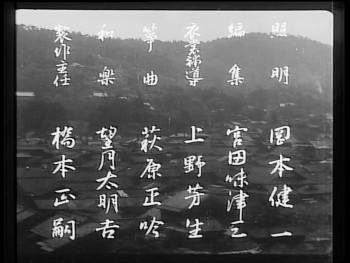 照明 岡本健一
編集 宮田味津三
衣裳補導 上野芳生
箏曲 萩原正吟
和楽 望月太明吉
製作主任 橋本正嗣